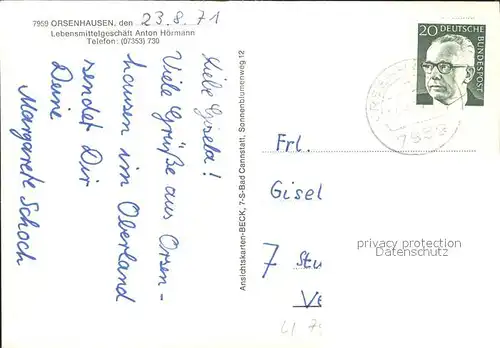 7959 ORSENHAUSEN, den 23.8.71
Lebensmittelgeschäft Anton Hörmann
Telefon: (07353) 730
Liebe Gisela!
Viele Grüße aus Orsen-
hausen im Oberland
sendet Dir
Deine
Margarete Schoch
Ansichtskarten-BECK, 7-S-Bad Cannstatt, Sonnenblumenweg 12
20 DEUTSCHE
BUNDESPOST
Frl.
Gisel
7 Stu
privacy protection
VERDATUM